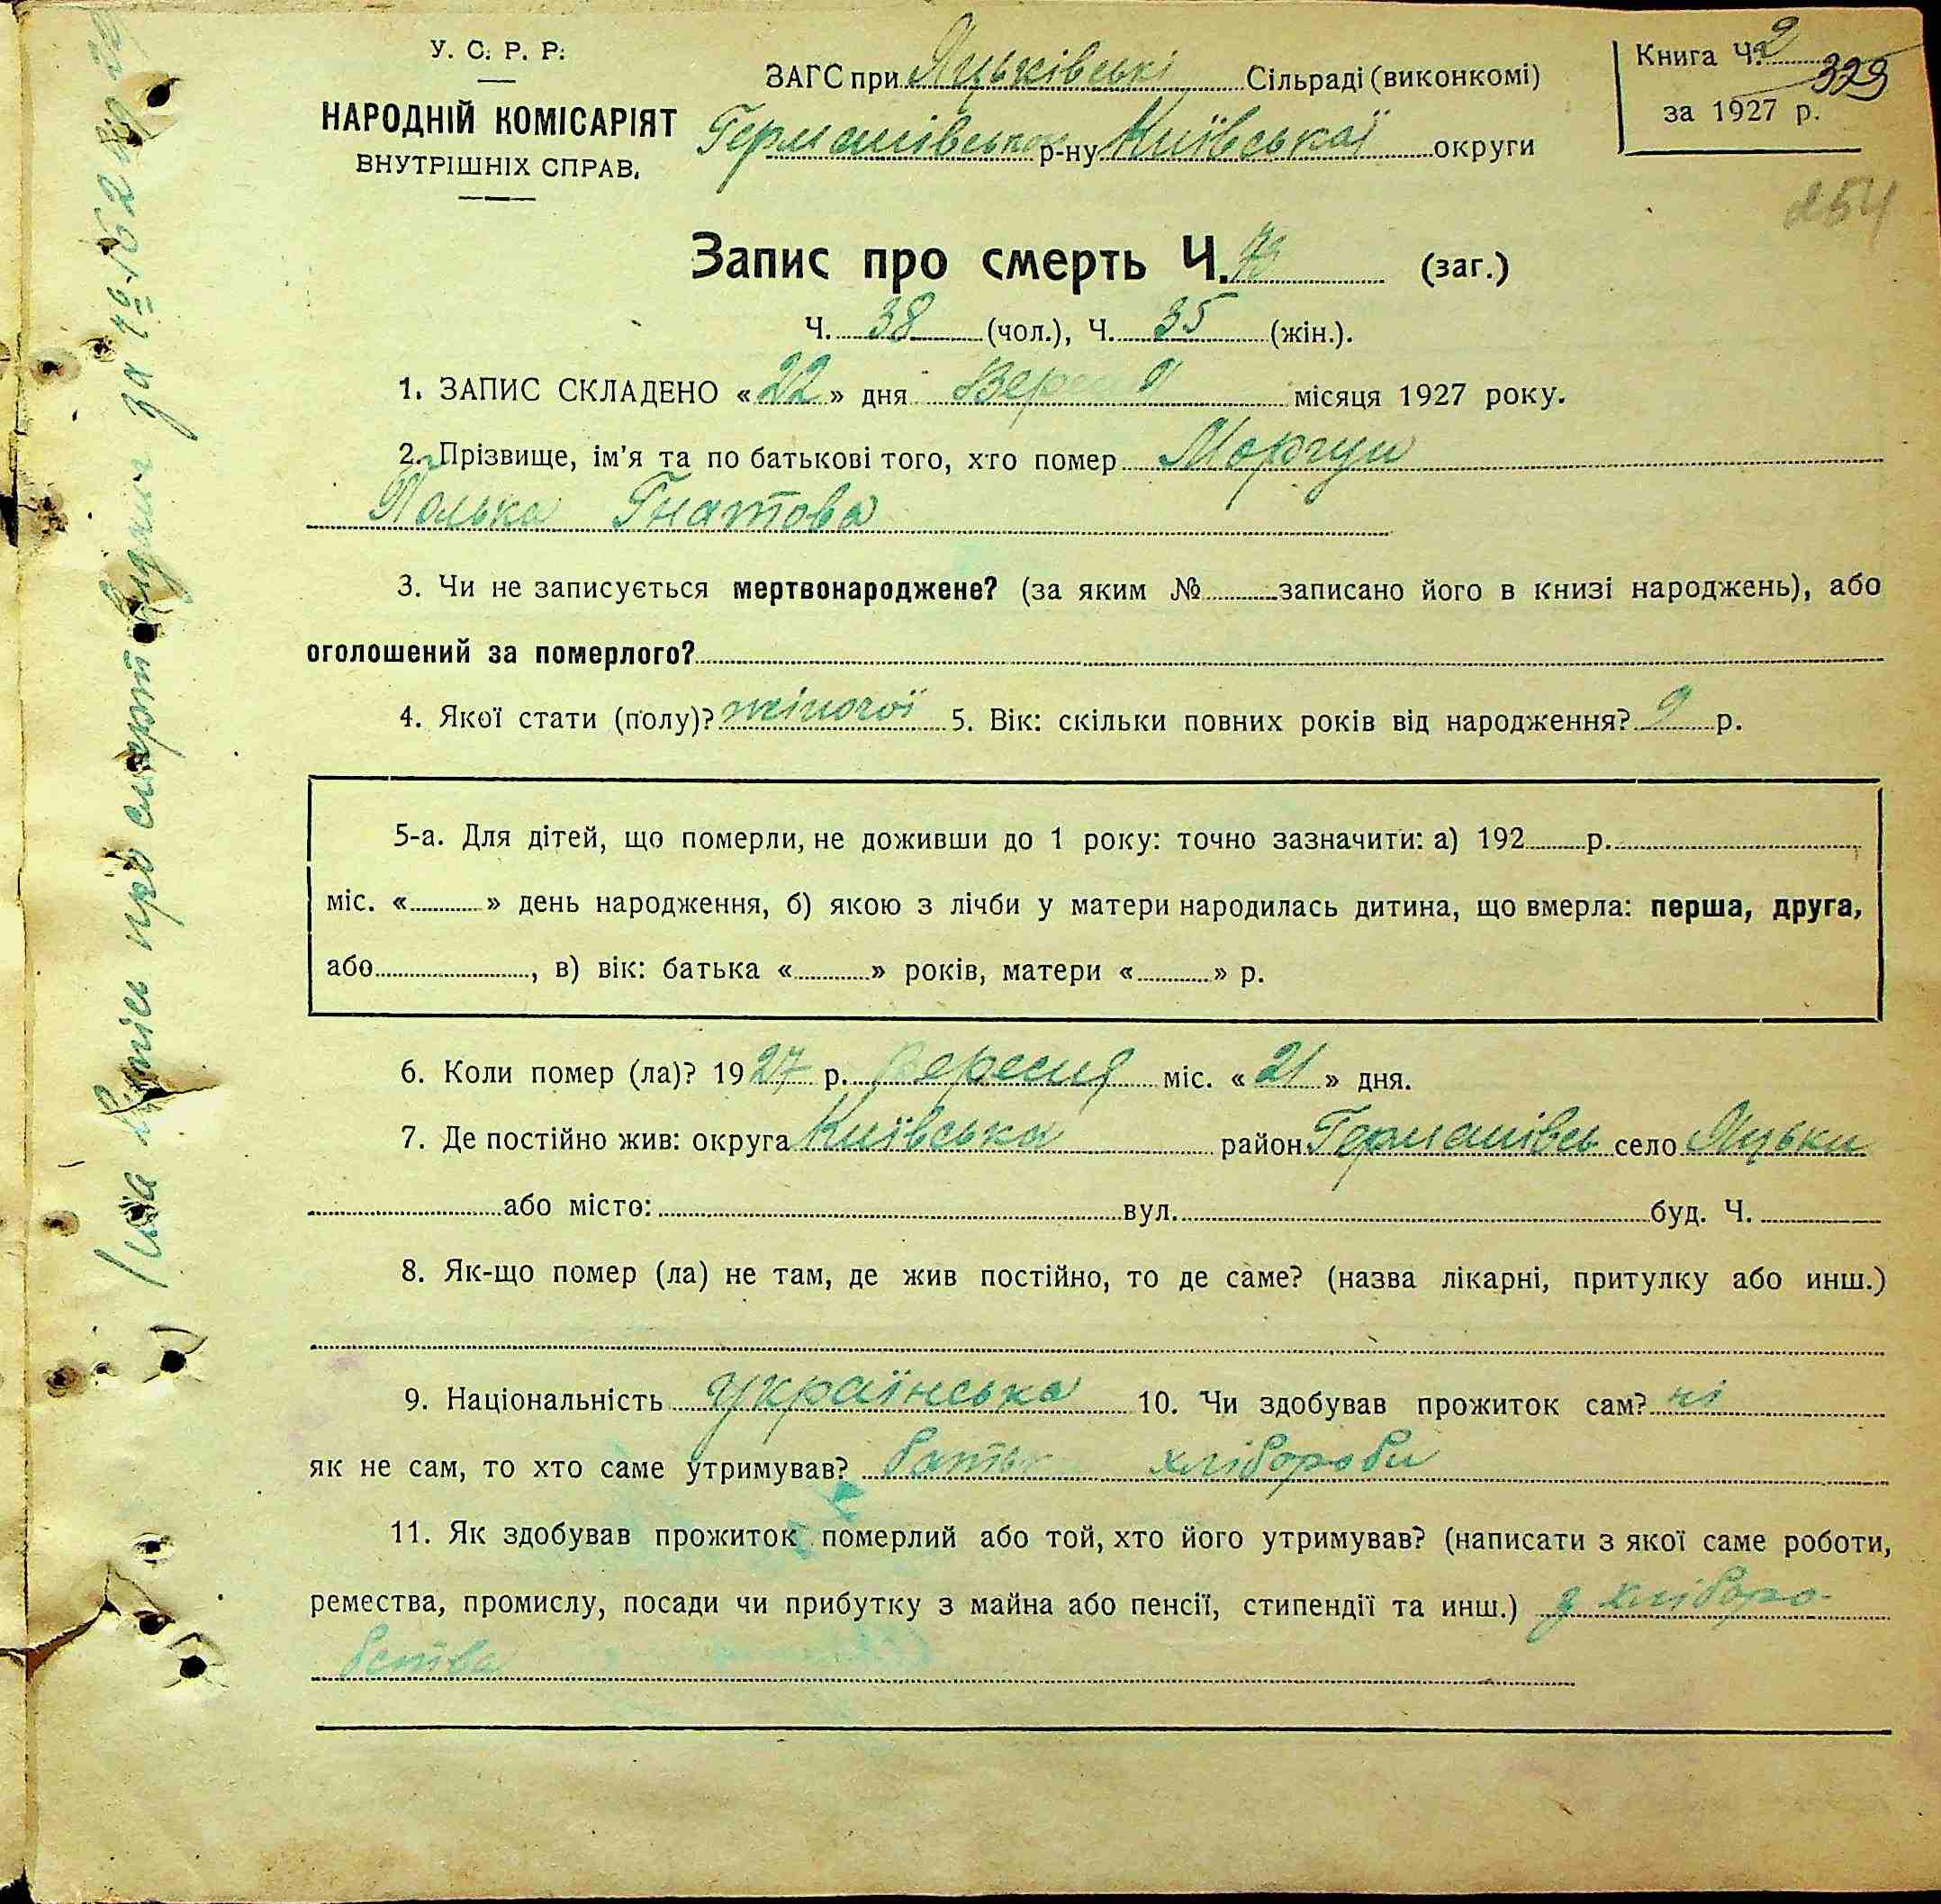 У. С. Р. Р.
НАРОДНІЙ КОМІСАРІЯТ
ВНУТРІШНІХ СПРАВ.
ЗАГС при Яцьківські Сільраді (виконкомі)
Германівсько р-ну Київської округи
Книга Ч. 2
329
за 1927 р.
254
Запис про смерть Ч. 73 (заг.)
Ч. 38 (чол.), Ч. 35 (жін.).
1. ЗАПИС СКЛАДЕНО «22» дня Вересня місяця 1927 року.
2. Прізвище, ім'я та по батькові того, хто помер Моргун
Полька Гнатова
3. Чи не записується мертвонароджене? (за яким № записано його в книзі народжень), або
оголошений за померлого?
4. Якої стати (полу)? жіночої 5. Вік: скільки повних років від народження? 9 р.
5-а. Для дітей, що померли, не доживши до 1 року: точно зазначити: а) 192 р.
міс. « » день народження, б) якою з лічби у матери народилась дитина, що вмерла: перша, друга,
або , в) вік: батька « » років, матери « » р.
6. Коли помер (ла)? 1927 р. вересня міс. «21» дня.
7. Де постійно жив: округа Київська район Германівсь село Яцьки
або місто: вул. буд. Ч.
8. Як-що помер (ла) не там, де жив постійно, то де саме? (назва лікарні, притулку або инш.)
9. Національність українська 10. Чи здобував прожиток сам? ні
як не сам, то хто саме утримував? батьк хлібороби
11. Як здобував прожиток померлий або той, хто його утримував? (написати з якої саме роботи,
ремества, промислу, посади чи прибутку з майна або пенсії, стипендії та инш.) з хліборо-
бства
про смерть видана за №